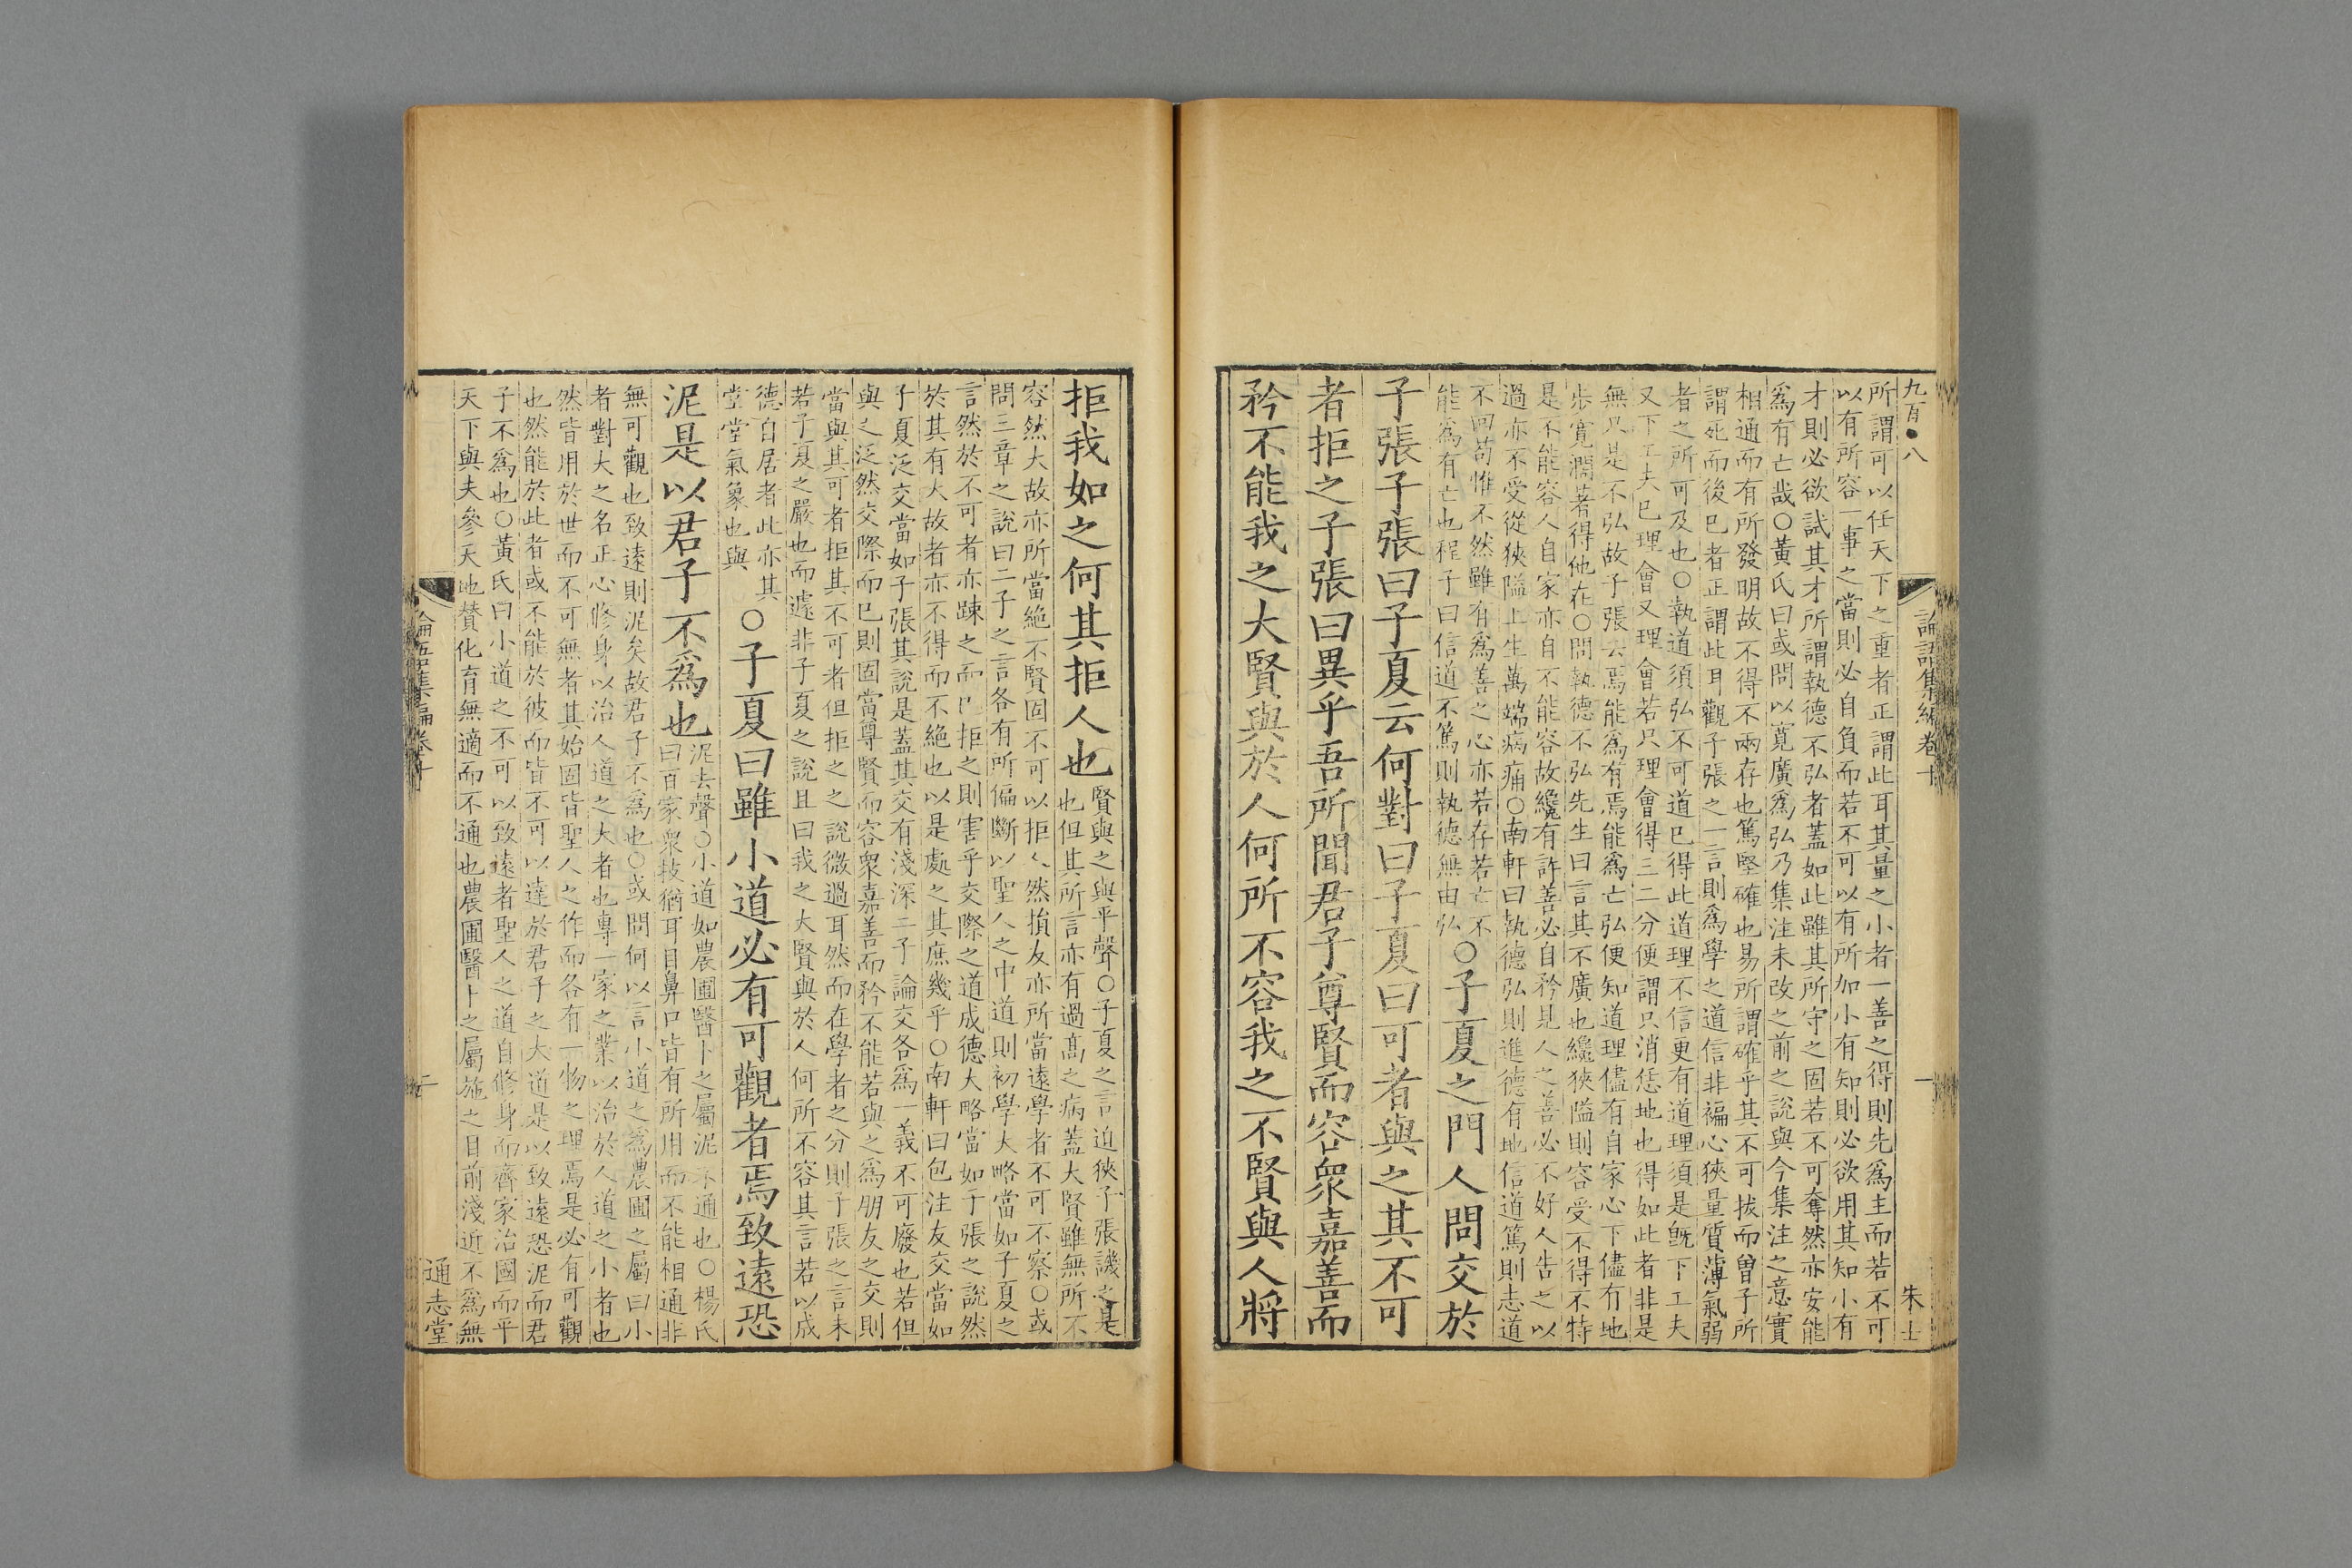 九百八
論語集編卷十
一
朱士
所謂可以任天下之重者正謂此耳其量之小者一善之得則先爲主而若不可
以有所容一事之當則必自負而若不可以有所加小有知則必欲用其知小有
才則必欲試其才所謂執德不弘者蓋如此雖其所守之固若不可奪然亦安能
爲有亡哉○黃氏曰或問以寬廣爲弘乃集注未改之前之說與今集注之意實
相通而有所發明故不得不兩存也篤堅確也易所謂確乎其不可拔而曾子所
謂死而後已者正謂此耳觀子張之一言則爲學之道信非褊心狹量質薄氣弱
者之所可及也○執道須弘不可道已得此道理不信更有道理須是旣下工夫
又下工夫已理會又理會若只理會得三二分便謂只消恁地也得如此者非是
無只是不弘故子張云焉能爲有焉能爲亡弘便知道理儘有自家心下儘有地
步寬濶著得他在○問執德不弘先生曰言其不廣也纔狹隘則容受不得不特
是不能容人自家亦自不能容故纔有許善必自矜見人之善必不好人告之以
過亦不受從狹隘上生萬端病痛○南軒曰執德弘則進德有地信道篤則志道
不回苟惟不然雖有爲善之心亦若存若亡不
能爲有亡也程子曰信道不篤則執德無由弘
○子夏之門人問交於
子張子張曰子夏云何對曰子夏曰可者與之其不可
者拒之子張曰異乎吾所聞君子尊賢而容衆嘉善而
矜不能我之大賢與於人何所不容我之不賢與人將
拒我如之何其拒人也
賢與之與平聲○子夏之言迫狹子張譏之是
也但其所言亦有過高之病蓋大賢雖無所不
容然大故亦所當絶不賢固不可以拒人然損友亦所當遠學者不可不察○或
問三章之說曰二子之言各有所偏斷以聖人之中道則初學大略當如子夏之
言然於不可者亦踈之而已拒之則害乎交際之道成德大略當如子張之說然
於其有大故者亦不得而不絶也以是處之其庶幾乎○南軒曰包注友交當如
子夏泛交當如子張其說是蓋其交有淺深二子論交各爲一義不可廢也若但
與之泛然交際而已則固當尊賢而容衆嘉善而矜不能若與之爲朋友之交則
當與其可者拒其不可者但拒之之說微過耳然而在學者之分則子張之言未
若子夏之嚴也而遽非子夏之說且曰我之大賢與於人何所不容其言若以成
德自居者此亦其
堂堂氣象也與
○子夏曰雖小道必有可觀者焉致遠恐
泥是以君子不爲也
泥去聲○小道如農圃醫卜之屬泥不通也○楊氏
曰百家衆技猶耳目鼻口皆有所用而不能相通非
無可觀也致遠則泥矣故君子不爲也○或問何以言小道之爲農圃之屬曰小
者對大之名正心修身以治人道之大者也專一家之業以治於人道之小者也
然皆用於世而不可無者其始固皆聖人之作而各有一物之理焉是必有可觀
也然能於此者或不能於彼而皆不可以達於君子之大道是以致遠恐泥而君
子不爲也○黃氏曰小道之不可以致遠者聖人之道自修身而齊家治國而平
天下與夫參天地贊化育無適而不通也農圃醫卜之屬施之目前淺近不爲無
論語集編卷十
二
通志堂